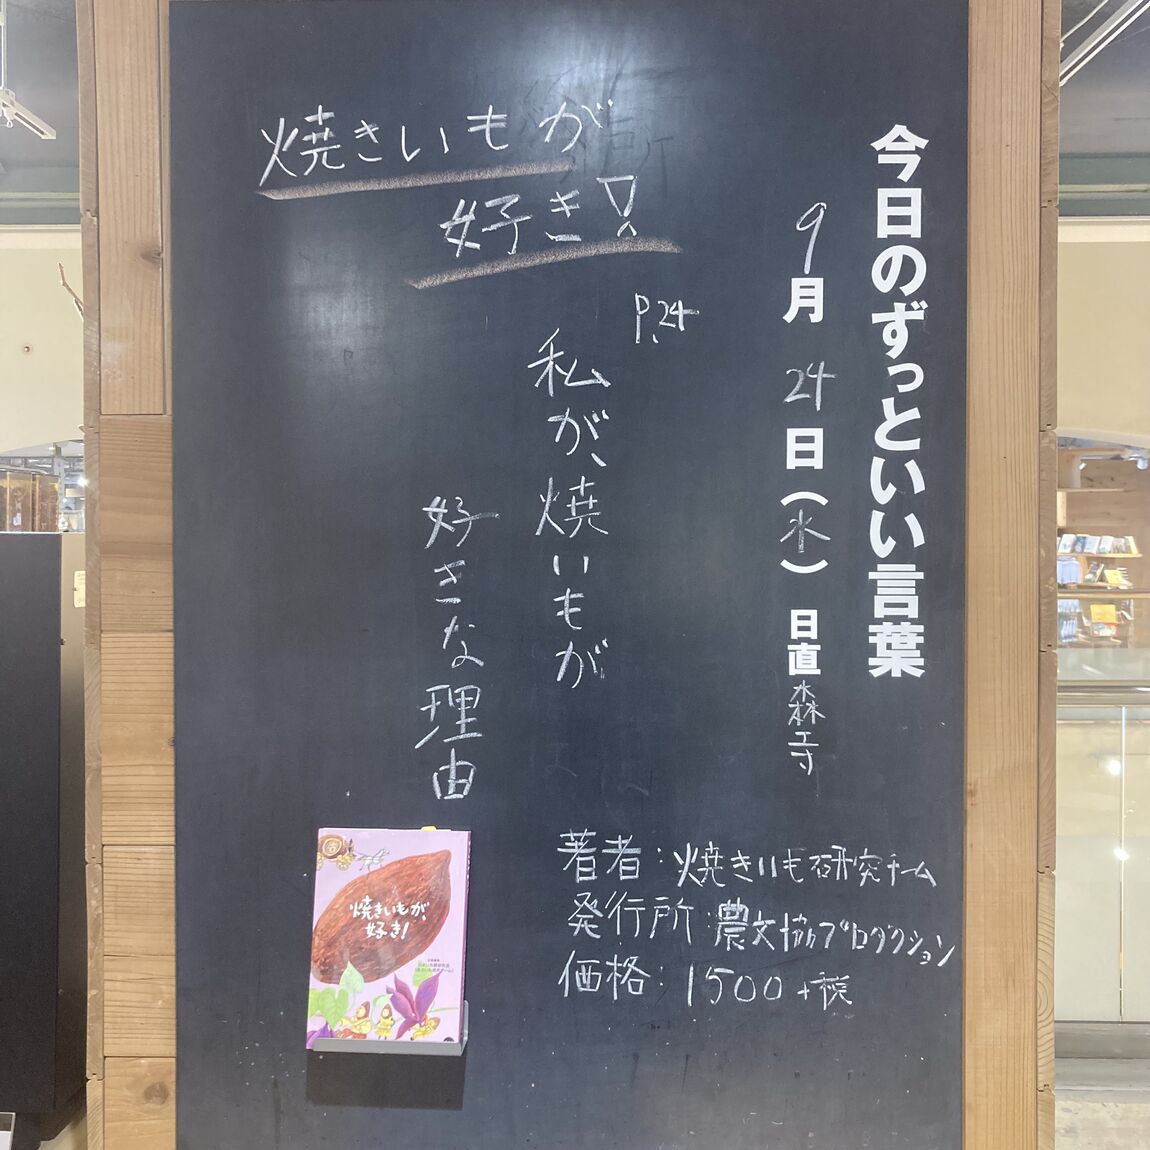 今日のずっといい言葉
9月24日(水) 日直 森寺
焼きいもが
好き!
P.24
私が、焼いもが
好きな理由
著者:焼きいも研究チーム
発行所:農文協プロダクション
価格:1500+税
焼きいもが、
好き!